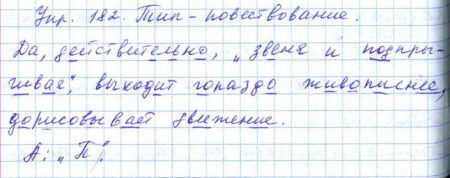 Упр. 182. Тип - повествование.
Да, действительно, „звеня и подпры-
гивая", выходит гораздо живописнее,
дорисовывает движение.
А: „П".